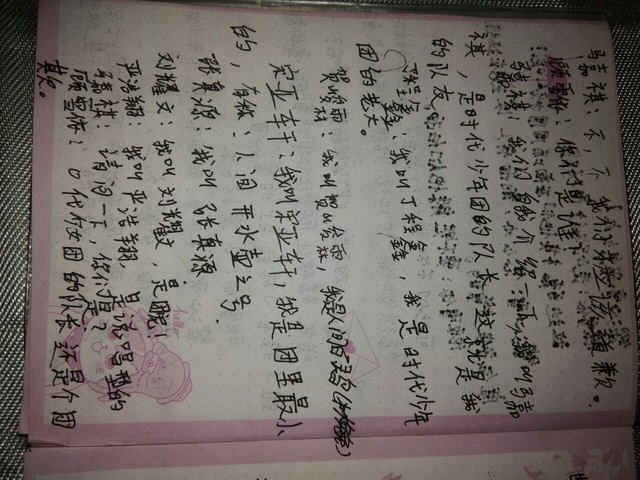 马嘉祺：不，不 我们应该道歉。
顾雪依：你们是谁
马嘉祺：我们自我介绍一下，我叫马嘉
祺，是时代少年团的队长 这就是我
的队友
丁程鑫：我叫丁程鑫，我是时代少年
团的老大。
贺峻霖：我叫贺峻霖，我是人间百灵鸟
宋亚轩：我叫宋亚轩，我是团里最小
的，自称：人间开水壶之号
张真源：我叫张真源
刘耀文：我叫刘耀文，是
严浩翔：我叫严浩翔，是说唱型的
马嘉祺：请问一下，你们是？
顾雪依：代女团的队长 还是个团